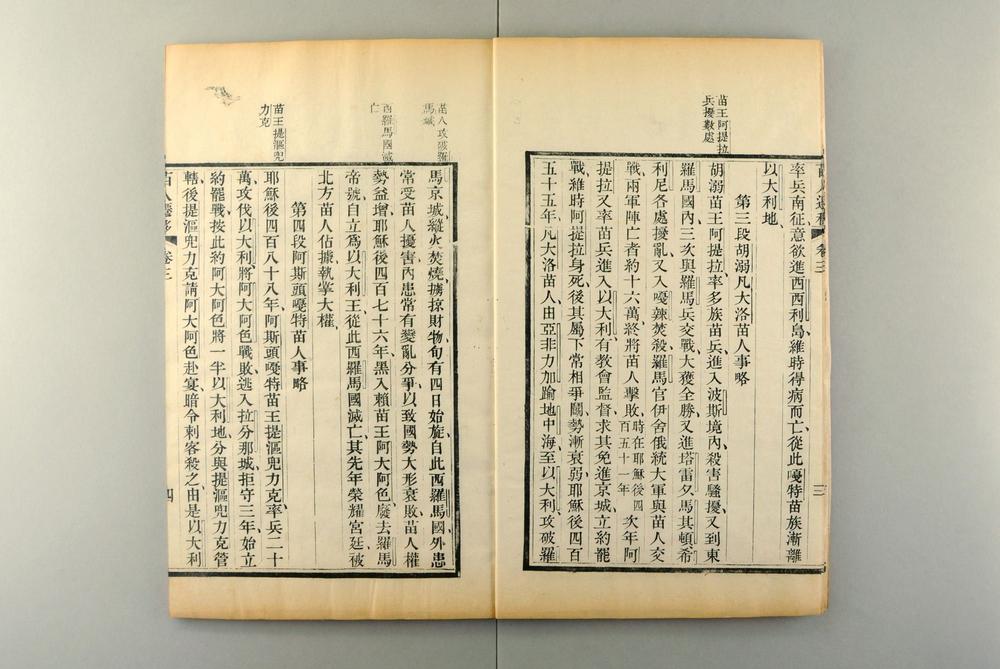 苗王阿提拉
兵擾數處
卷三
三
率兵南征意欲進西西利島維時得病而亡從此嘎特苗族漸離
以大利地
第三段胡溺凡大洛苗人事略
胡溺苗王阿提拉率多族苗兵進入波斯境內殺害騷擾又到東
羅馬國內三次與羅馬兵交戰大獲全勝又進塔雷夕馬其頓希
利尼各處擾亂又入嘎辣焚殺羅馬官伊舍俄統大軍與苗人交
戰兩軍陣亡者約十六萬終將苗人擊敗時在耶穌後四百五十一年次年阿
提拉又率苗兵進入以大利有教會監督求其免進京城立約罷
戰維時阿提拉身死後其屬下常相爭鬭勢漸衰弱耶穌後四百
五十五年凡大洛苗人由亞非力加踰地中海至以大利攻破羅
苗人攻破羅
馬城
西羅馬國滅
亡
苗王提漚兜
力克
馬京城縱火焚燒擄掠財物旬有四日始旋自此西羅馬國外患
常受苗人擾害內患常有變亂分爭以致國勢大形衰敗苗人權
勢益增耶穌後四百七十六年黑入賴苗王阿大阿色廢去羅馬
帝號自立為以大利王從此西羅馬國滅亡其先年榮耀宮廷被
北方苗人佔據執掌大權
第四段阿斯頭嘎特苗人事略
耶穌後四百八十八年阿斯頭嘎特苗王提漚兜力克率兵二十
萬攻伐以大利將阿大阿色戰敗逃入拉分那城拒守三年始立
約罷戰按此約阿大阿色將一半以大利地分與提漚兜力克管
轄後提漚兜力克請阿大阿色赴宴暗令刺客殺之由是以大利
苗人遷移
卷三
四